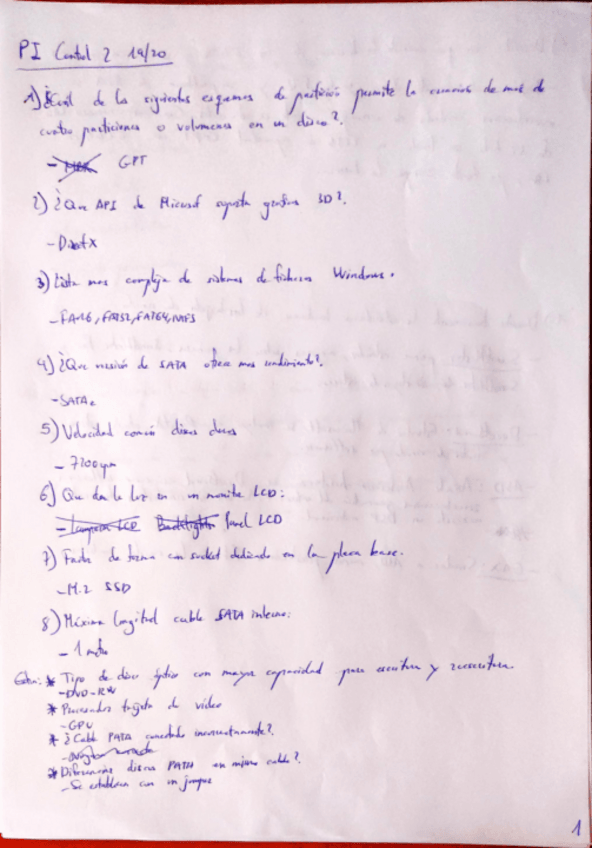 PI Control 2 19/20
1) ¿Cuál de los siguientes esquemas de partición permite la creación de más de
cuatro particiones o volúmenes en un disco?.
- MBR GPT
2) ¿Que API de Microsof soporta graficos 3D?.
- DirectX
3) Lista mas completa de sistemas de ficheros Windows.
- FAT16, FAT32, FAT64, NTFS
4) ¿Que versión de SATA ofrece mas rendimiento?.
- SATAe
5) Velocidad común discos duros
- 7200rpm
6) Que da la luz en un monitor LCD:
- Lampara LCD Backlights Panel LCD
7) Factor de forma con socket dedicado en la placa base.
- M.2 SSD
8) Máxima longitud cable SATA interno:
- 1 metro
Extra: * Tipo de disco óptico con mayor capacidad para escritura y reescritura.
- DVD-RW
* Procesador tarjeta de vídeo
- GPU
* ¿Cable PATA conectado incorrectamente?.
* Diferencia discos PATA en mismo cable?.
- Se establecen con un jumper
1